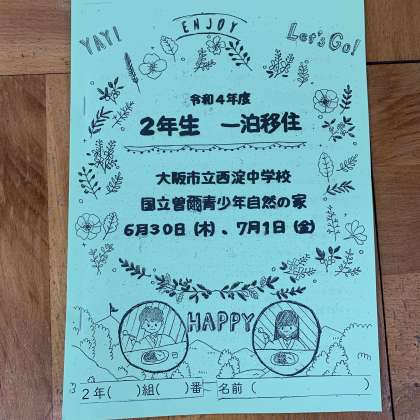 YAY!
ENJOY
Let's Go!
令和4年度
2年生 一泊移住
大阪市立西淀中学校
国立曽爾青少年自然の家
6月30日（木）、7月1日（金）
HAPPY
2年（　）組（　）番　名前（　　　　）